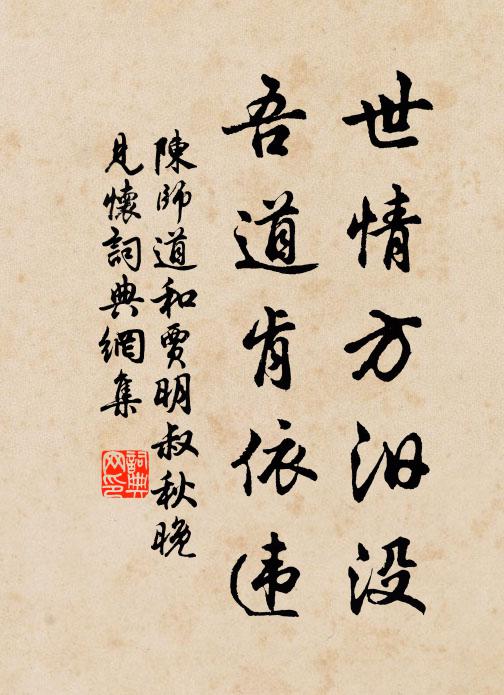 世情方汩没
吾道肯依违
陳師道和賈明叔秋晚
見懷詞典網集
詞典
网印